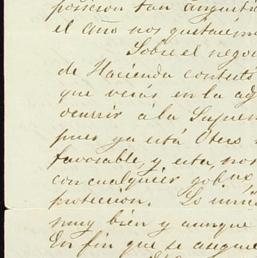 posicion tan angusti
el año nos gustarem
Sobre el nego
de Hacienda contest
que verás en la ad
ocurrir a la Supre
pues ya está Otero
favorable, y esta, nos
con cualquier gob.no
proteccion. Lo unic
muy bien y aunque
En fin que se asegure